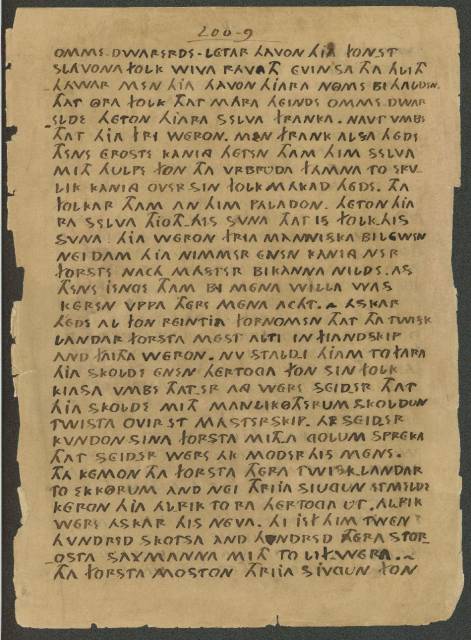 200-9
OMME. DWARESDES. LETAR HAVON HIA FONST
SLAVONA FOLK WIVA RAVATH EVIN SA THA HLITH
HAWAR MEN HIA HAVON HIARA NOME BIHALDEN.
THAT ORA FOLK THAT MARA HEINDE OMME. DWAR
ESDE HETON HIARA SELVA FRANKA. NAVT VMBE
THAT HIA FRI WERON. MEN FRANK ALSA HEDE
THENE EROSTE KANIG HETEN THAM HIM SELVA
MITH HULPE FON THA VRBRUDA FAMNA TO ERV
LIK KANIG OVER SIN FOLK MAKAD HEDE. THA
FOLKAR THAM AN HIM PALADON. HETON HIA
RA SELVA THIOTH. HIS SUNA THAT IS FOLK.HIS
SUNA. HIA WERON FRIA MANNISKA BILEWEN
NEIDAM HIA NIMMER ENEN KANIG NER
FORSTE NACH MASTER BIKANNA NILDE. AS
THENE JENGE THAM BI MENA WILLA WAS
KEREN VPPA THERE MENA ACHT. ASKAR
HEDE AL FON REINTIA FORNOMEN THAT THA TWISK
LANDAR FORSTA MEST ALTI IN FIANDSKIP
AND FAITHA WERON. NV STALDI HIAM TO FARA
HIA SKOLDE ENEN HERTOGA FON SIN FOLK
KIASA VMBE THAT.ER AG WERE SEIDER THAT
HIA SKOLDE MITH MANLIKOTHERUM SKOLDUN
TWISTA OVIR ET MASTERSKIP. AK SEIDER
KVNDON SINA FORSTA MITHA GOLUM SPREKA
THAT SEIDER WERE AK MODER HIS MENE.
THA KEMON THA FORSTA THERA TWISK.LANDAR
TO EKKORUM AND NEI THRIJA SIUGUN ETMELDE
KERON HIA ALRIK TO RA HERTOGA UT. ALRIK
WERE ASKAR HIS NEVA. HI JEF HIM TWEN
HVNDRED SKOTSA AND HVNDRED THERA STOR
OSTA SAXMANNA MITH TO LIF.WERA.
THA FORSTA MOSTON THRIJA SIVGUN FON